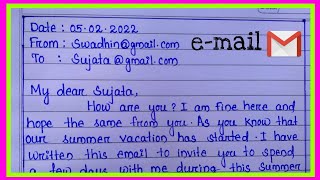 Date : 05.02.2022
From : Swadhin@gmail.com
e-mail
To : Sujata@gmail.com
My dear Sujata,
How are you? I am fine here and
hope the same from you. As you know that
our summer vacation has started. I have
written this email to invite you to spend
a few days with me during this summer